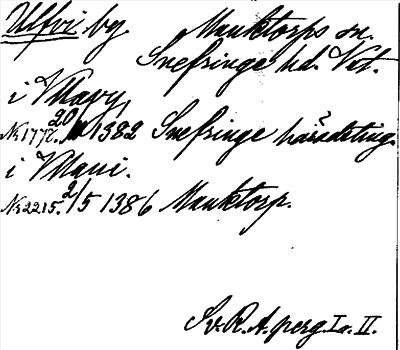 Ulfvi by Munktorps sn.
Snefringe hd. Vstm.
i Vllavy
No 1772. 20/10 1382 Snefringe häradsting
i Vllavi.
No 2215. 2/5 1386 Munktorp.
Sv. R. A. perg. I o. II.